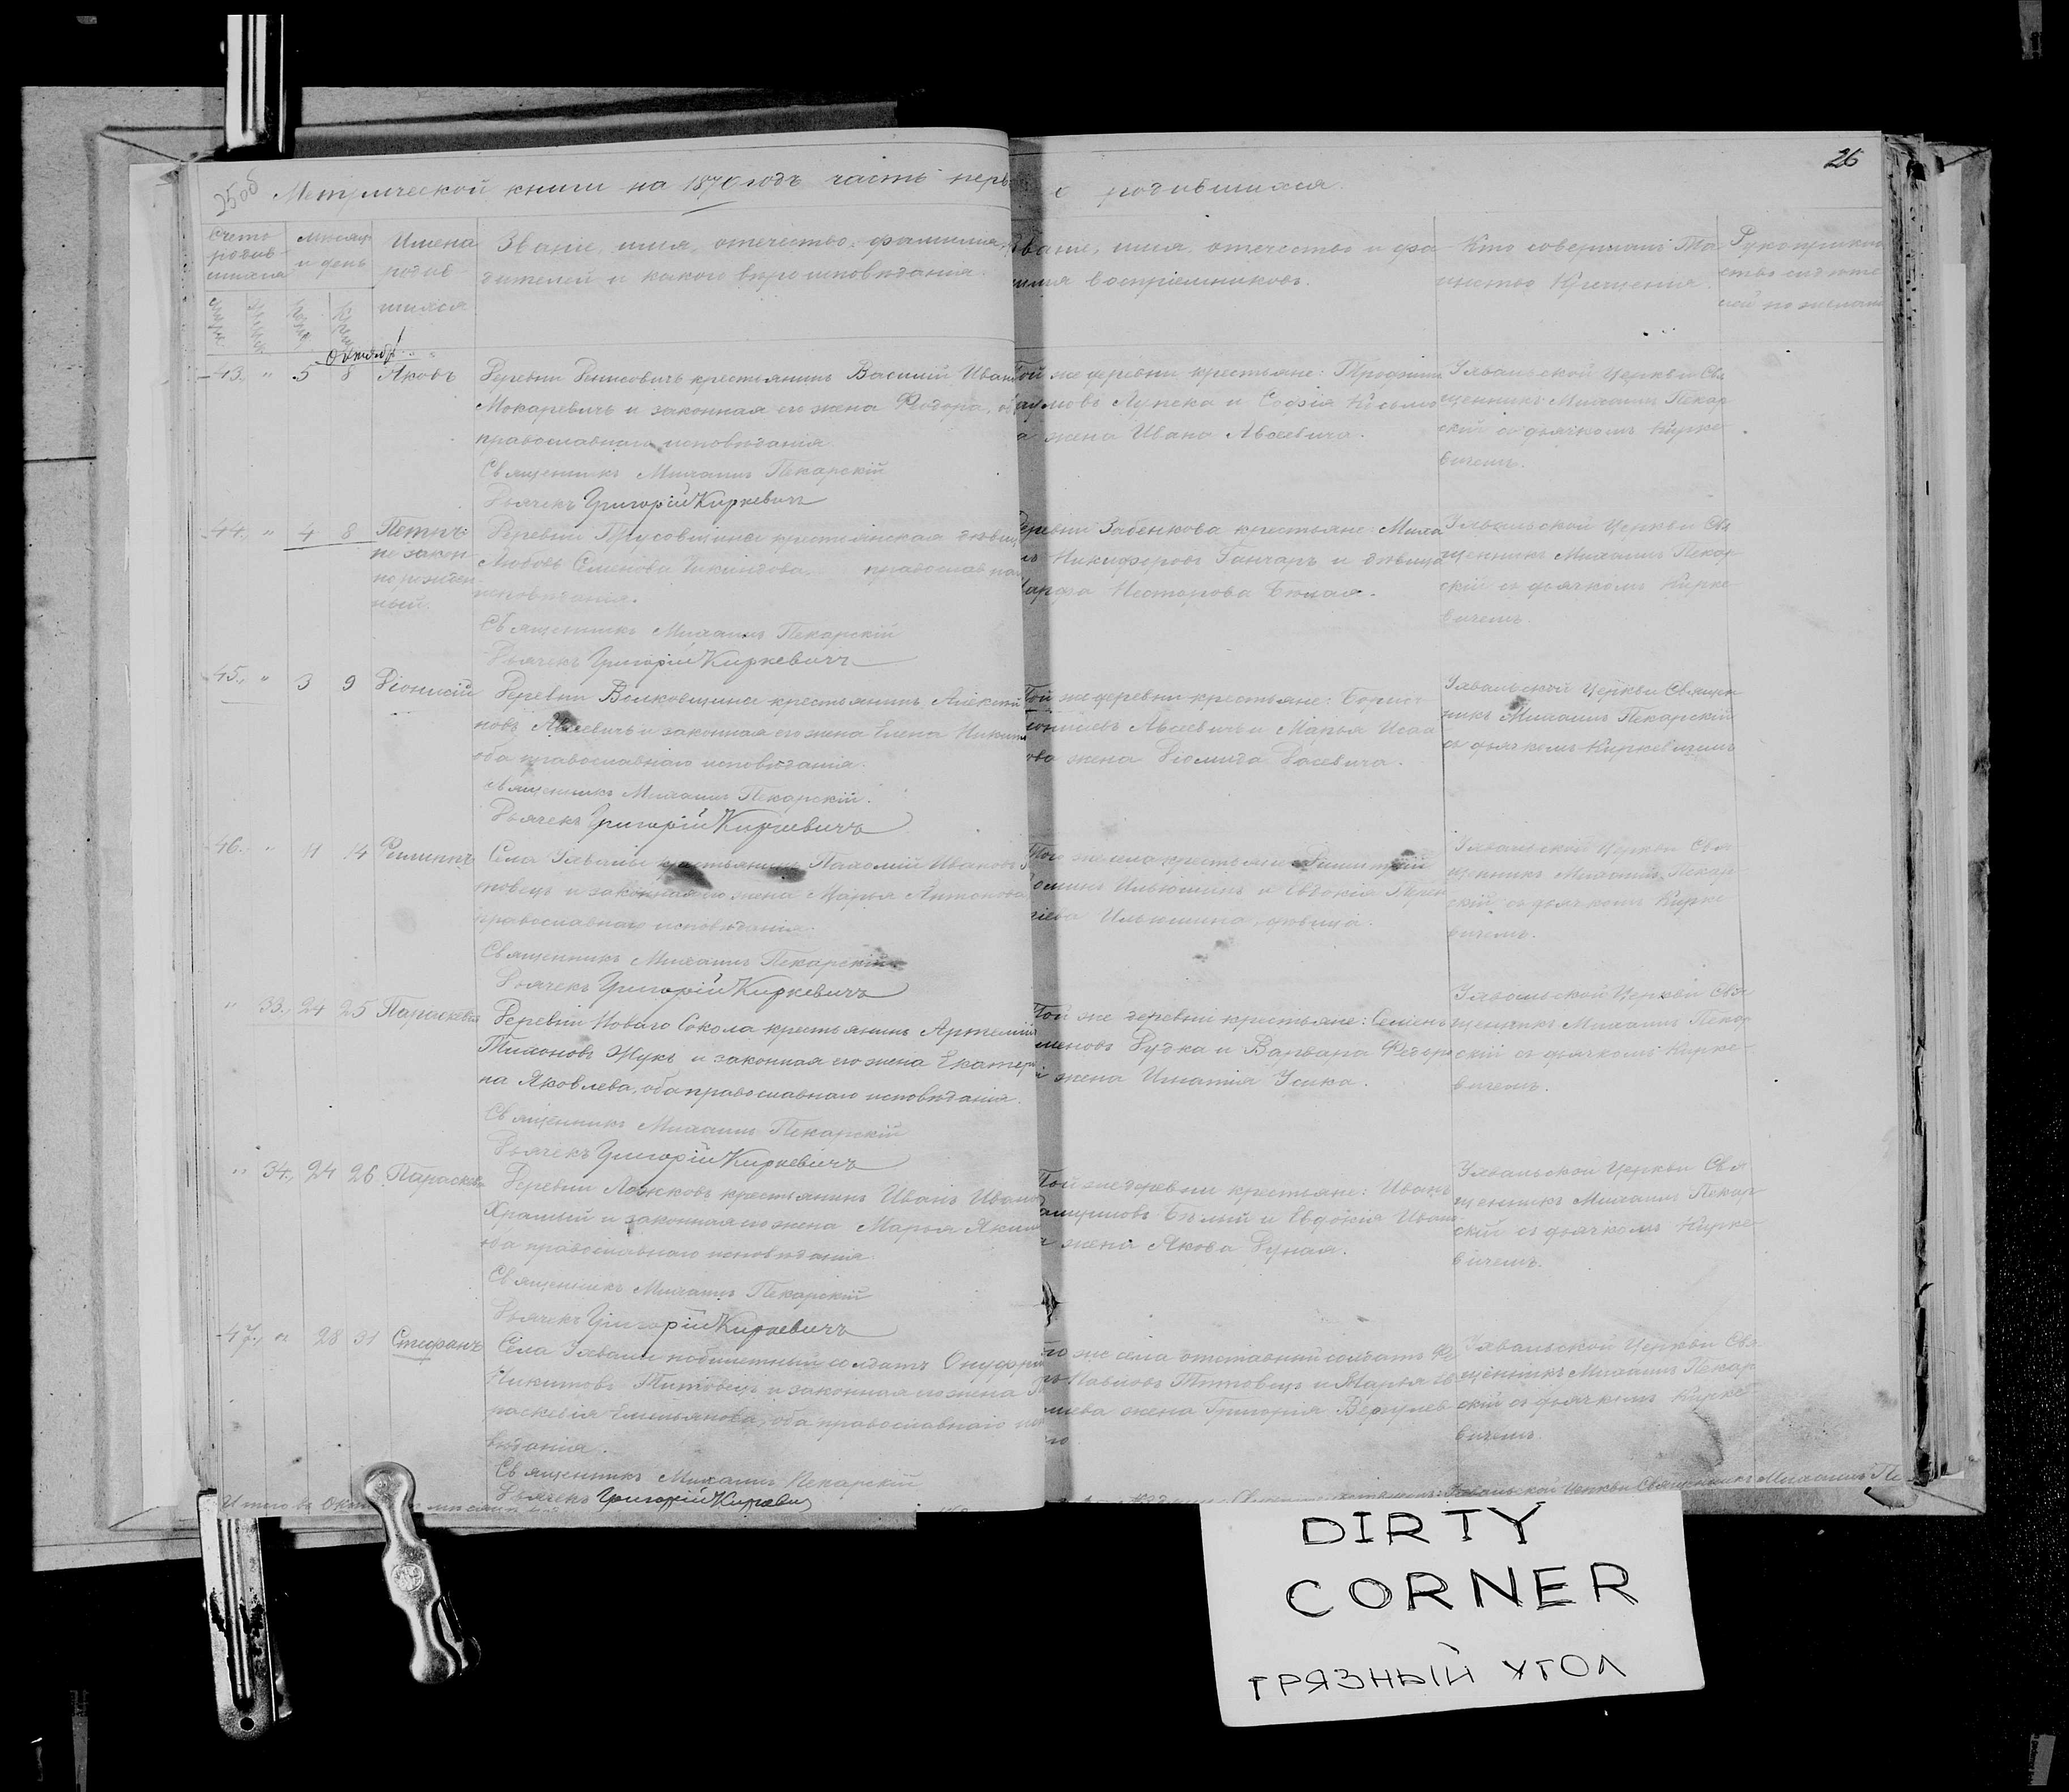 25об
Метрической книги на 1870 годъ часть перв
о родившихся.
26
Счетъ родив-шихся
Месяцъ и день
Имена родив-шихся
Званіе, имя, отечество, фамилия
дителей и какого вероисповѣданія.
Званіе, имя, отечество и фа
милия восприемниковъ.
Кто совершалъ Та
инство Крещенія.
Рукоприклад
ство свидѣте
лей по желани
Октябр
43. " 5 8 Яковъ
Деревни Денисовичъ крестьянинъ Василій Иван
Мокаревичъ и законная его жена Ѳодора, об
православнаго исповѣданія.
Священникъ Михаилъ Пекарскій
Дьячекъ Григорій Киркевичъ
Той же деревни крестьяне: Трофимъ
Наумовъ Лупека и Софія Косьмо
а жена Ивана Авсеевича.
Улвальской Церкви Свя
щенникъ Михаилъ Пекар
скій съ дьячкомъ Кирке
вичемъ.
44. " 4 8 Петръ незакон норожден ный.
Деревни Прусовщины крестьянская дѣвиц
Любовь Семенова православна
исповѣданія.
Священникъ Михаилъ Пекарскій
Дьячекъ Григорій Киркевичъ
Деревни Забенкова крестьяне: Миха
лъ Никифоровъ Ганчаръ и дѣвица
Марфа Несторова Бѣлая.
Улвальской Церкви Свя
щенникъ Михаилъ Пекар
скій съ дьячкомъ Кирке
вичемъ.
45. " 3 9 Діонисій
Деревни Волковщины крестьянинъ Алексѣй
новъ Авсеевичъ и законная его жена Елена Никит
оба православнаго исповѣданія.
Священникъ Михаилъ Пекарскій.
Дьячекъ Григорій Киркевичъ
Той же деревни крестьяне: Борис
Діонисіевъ Авсеевичъ и Марья Исаа
ова жена Діомида Василевича.
Улвальской Церкви Священ
никъ Михаилъ Пекарскій
съ дьячкомъ Киркевичемъ
46. " 11 14 Филиппъ
Села Улвалы крестьянинъ Пахомій Ивановъ Т
товецъ и законная его жена Марья Антонова
православнаго исповѣданія.
Священникъ Михаилъ Пекарскій
Дьячекъ Григорій Киркевичъ
Того же села крестьяне: Димитрій
Ильюшинъ и Евдокія
ріева Ильюшина, дѣвица.
Улвальской Церкви Свя
щенникъ Михаилъ Пекар
скій съ дьячкомъ Кирке
вичемъ.
" 33. 24 25 Параскевія
Деревни Новаго Сокола крестьянинъ Артемій
Тихоновъ Жукъ и законная его жена Екатери
на Яковлева, оба православнаго исповѣданія.
Священникъ Михаилъ Пекарскій
Дьячекъ Григорій Киркевичъ
Той же деревни крестьяне: Семенъ
меновъ Дудка и Варвара Ѳедор
жена Игнатія Усика.
Улвальской Церкви Свя
щенникъ Михаилъ Пекар
скій съ дьячкомъ Кирке-
вичемъ.
" 34. 24 26 Параскев
Деревни Ложковъ крестьянинъ Иванъ Ивано
Храмый и законная его жена Марья Яким
оба православнаго исповѣданія.
Священникъ Михаилъ Пекарскій
Дьячекъ Григорій Киркевичъ
Той же деревни крестьяне: Иванъ
Бѣлый и Евдокія Иван
а жена Якова Дуная.
Улвальской Церкви Свя
щенникъ Михаилъ Пекар
скій съ дьячкомъ Кирке
вичемъ.
47. " 28 31 Стефанъ
Села Улвалы побилетный солдатъ Онуфрій
Никитовъ Титовецъ и законная его жена Па
раскевія Емельянова, оба православнаго испо
вѣданія.
Священникъ Михаилъ Пекарскій
Дьячекъ Григорій Киркеви
Того же села отставной солдатъ Ѳе
ръ Павловъ Титовецъ и Марья
жена Григорія Вергулев
го
Улвальской Церкви Свя
щенникъ Михаилъ Пекар
скій съ дьячкомъ Кирке
вичемъ
Итого въ Окт
Улвальской Церкви Священникъ Михаилъ Пе
DIRTY
CORNER
ГРЯЗНЫЙ УГОЛ